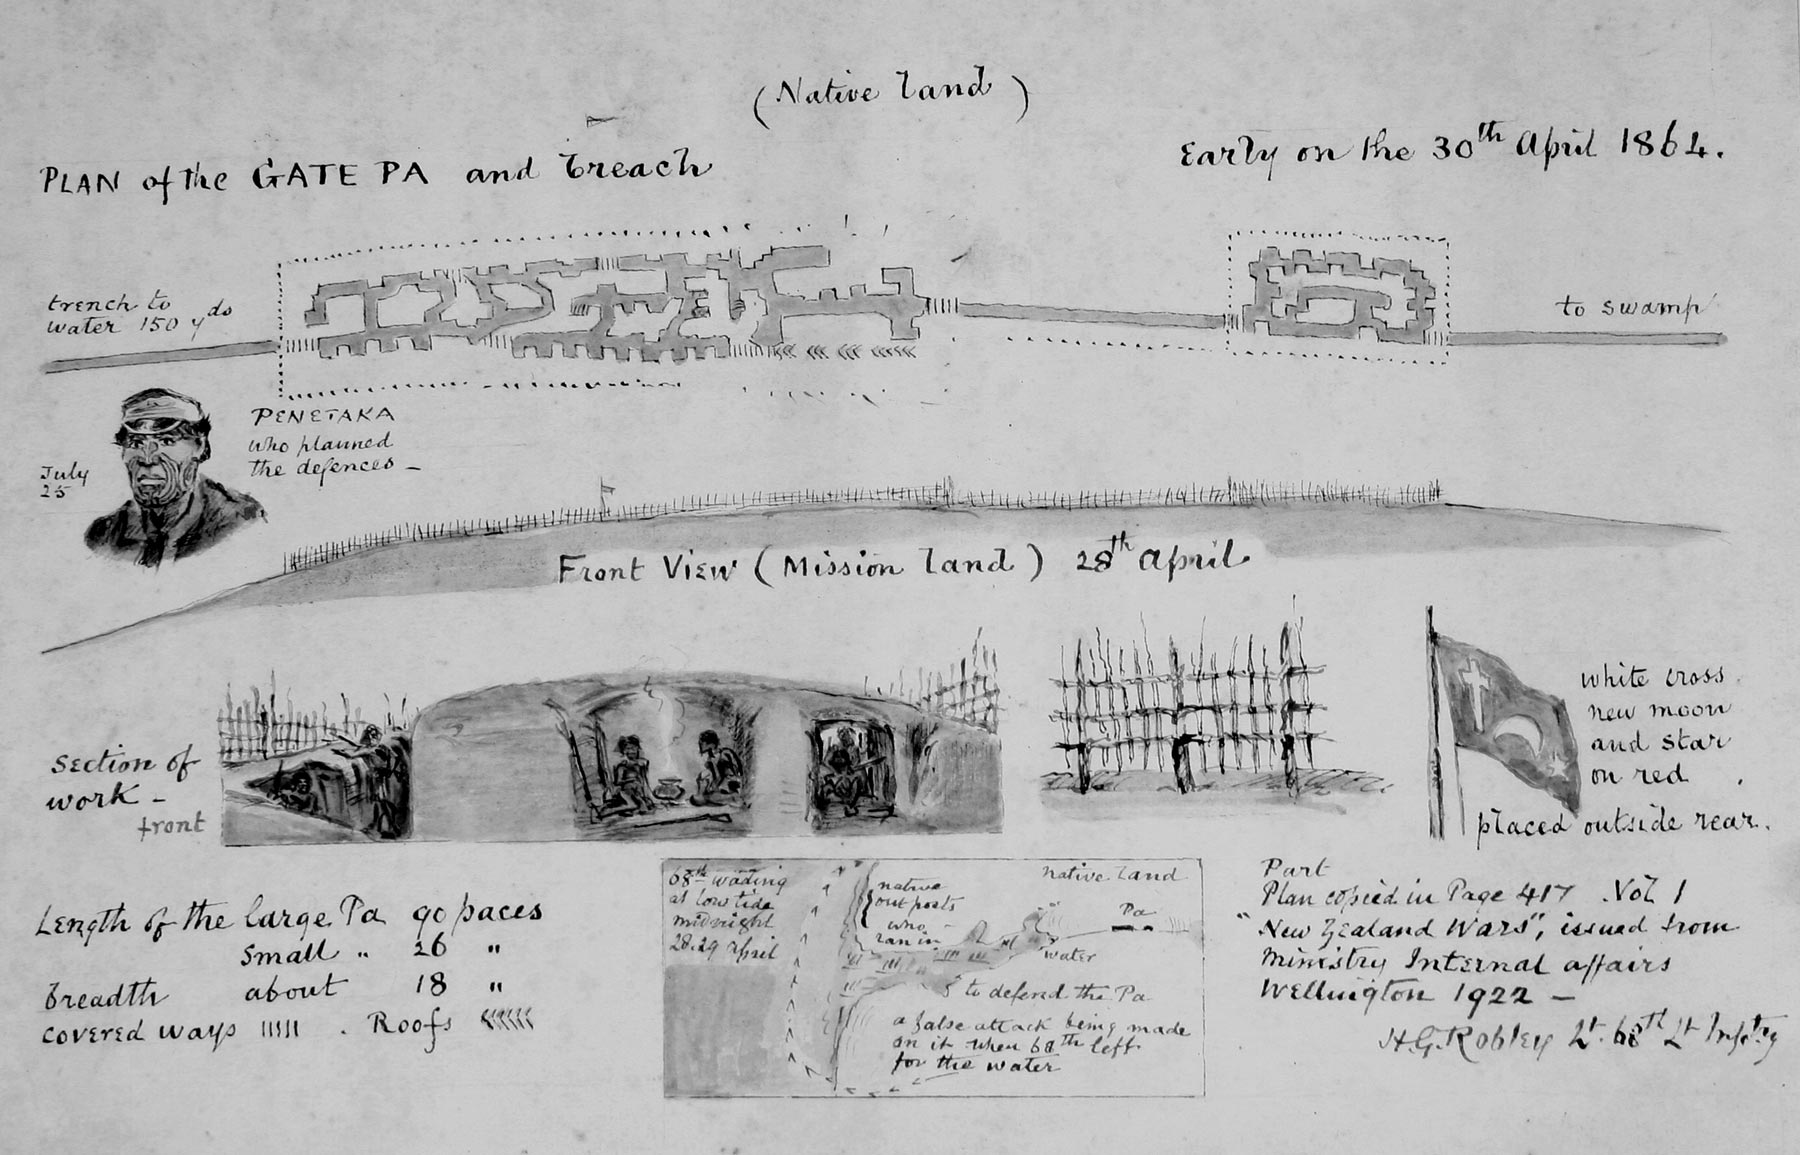 (Native land)
PLAN of the GATE PA and breach
Early on the 30th April 1864.
trench to
water 150 yds
to swamp
PENETAKA
who planned
the defences –
July
25
Front View (Mission land) 28th April
white cross
new moon
and star
on red
placed outside rear.
Section of
work –
front
Length of the large Pa 90 paces
small " 26 "
breadth about 18 "
covered ways ııııı . Roofs
68th wading
at low tide
midnight
28.29 April
native
outposts
who
ran in
native land
Pa
water
to defend the Pa
a false attack being made
on it when 68th left
for the water
Part
Plan copied in Page 417 . Vol 1
"New Zealand Wars", issued from
Ministry Internal affairs
Wellington 1922 –
H.G. Robley Lt. 68th Lt Inftry